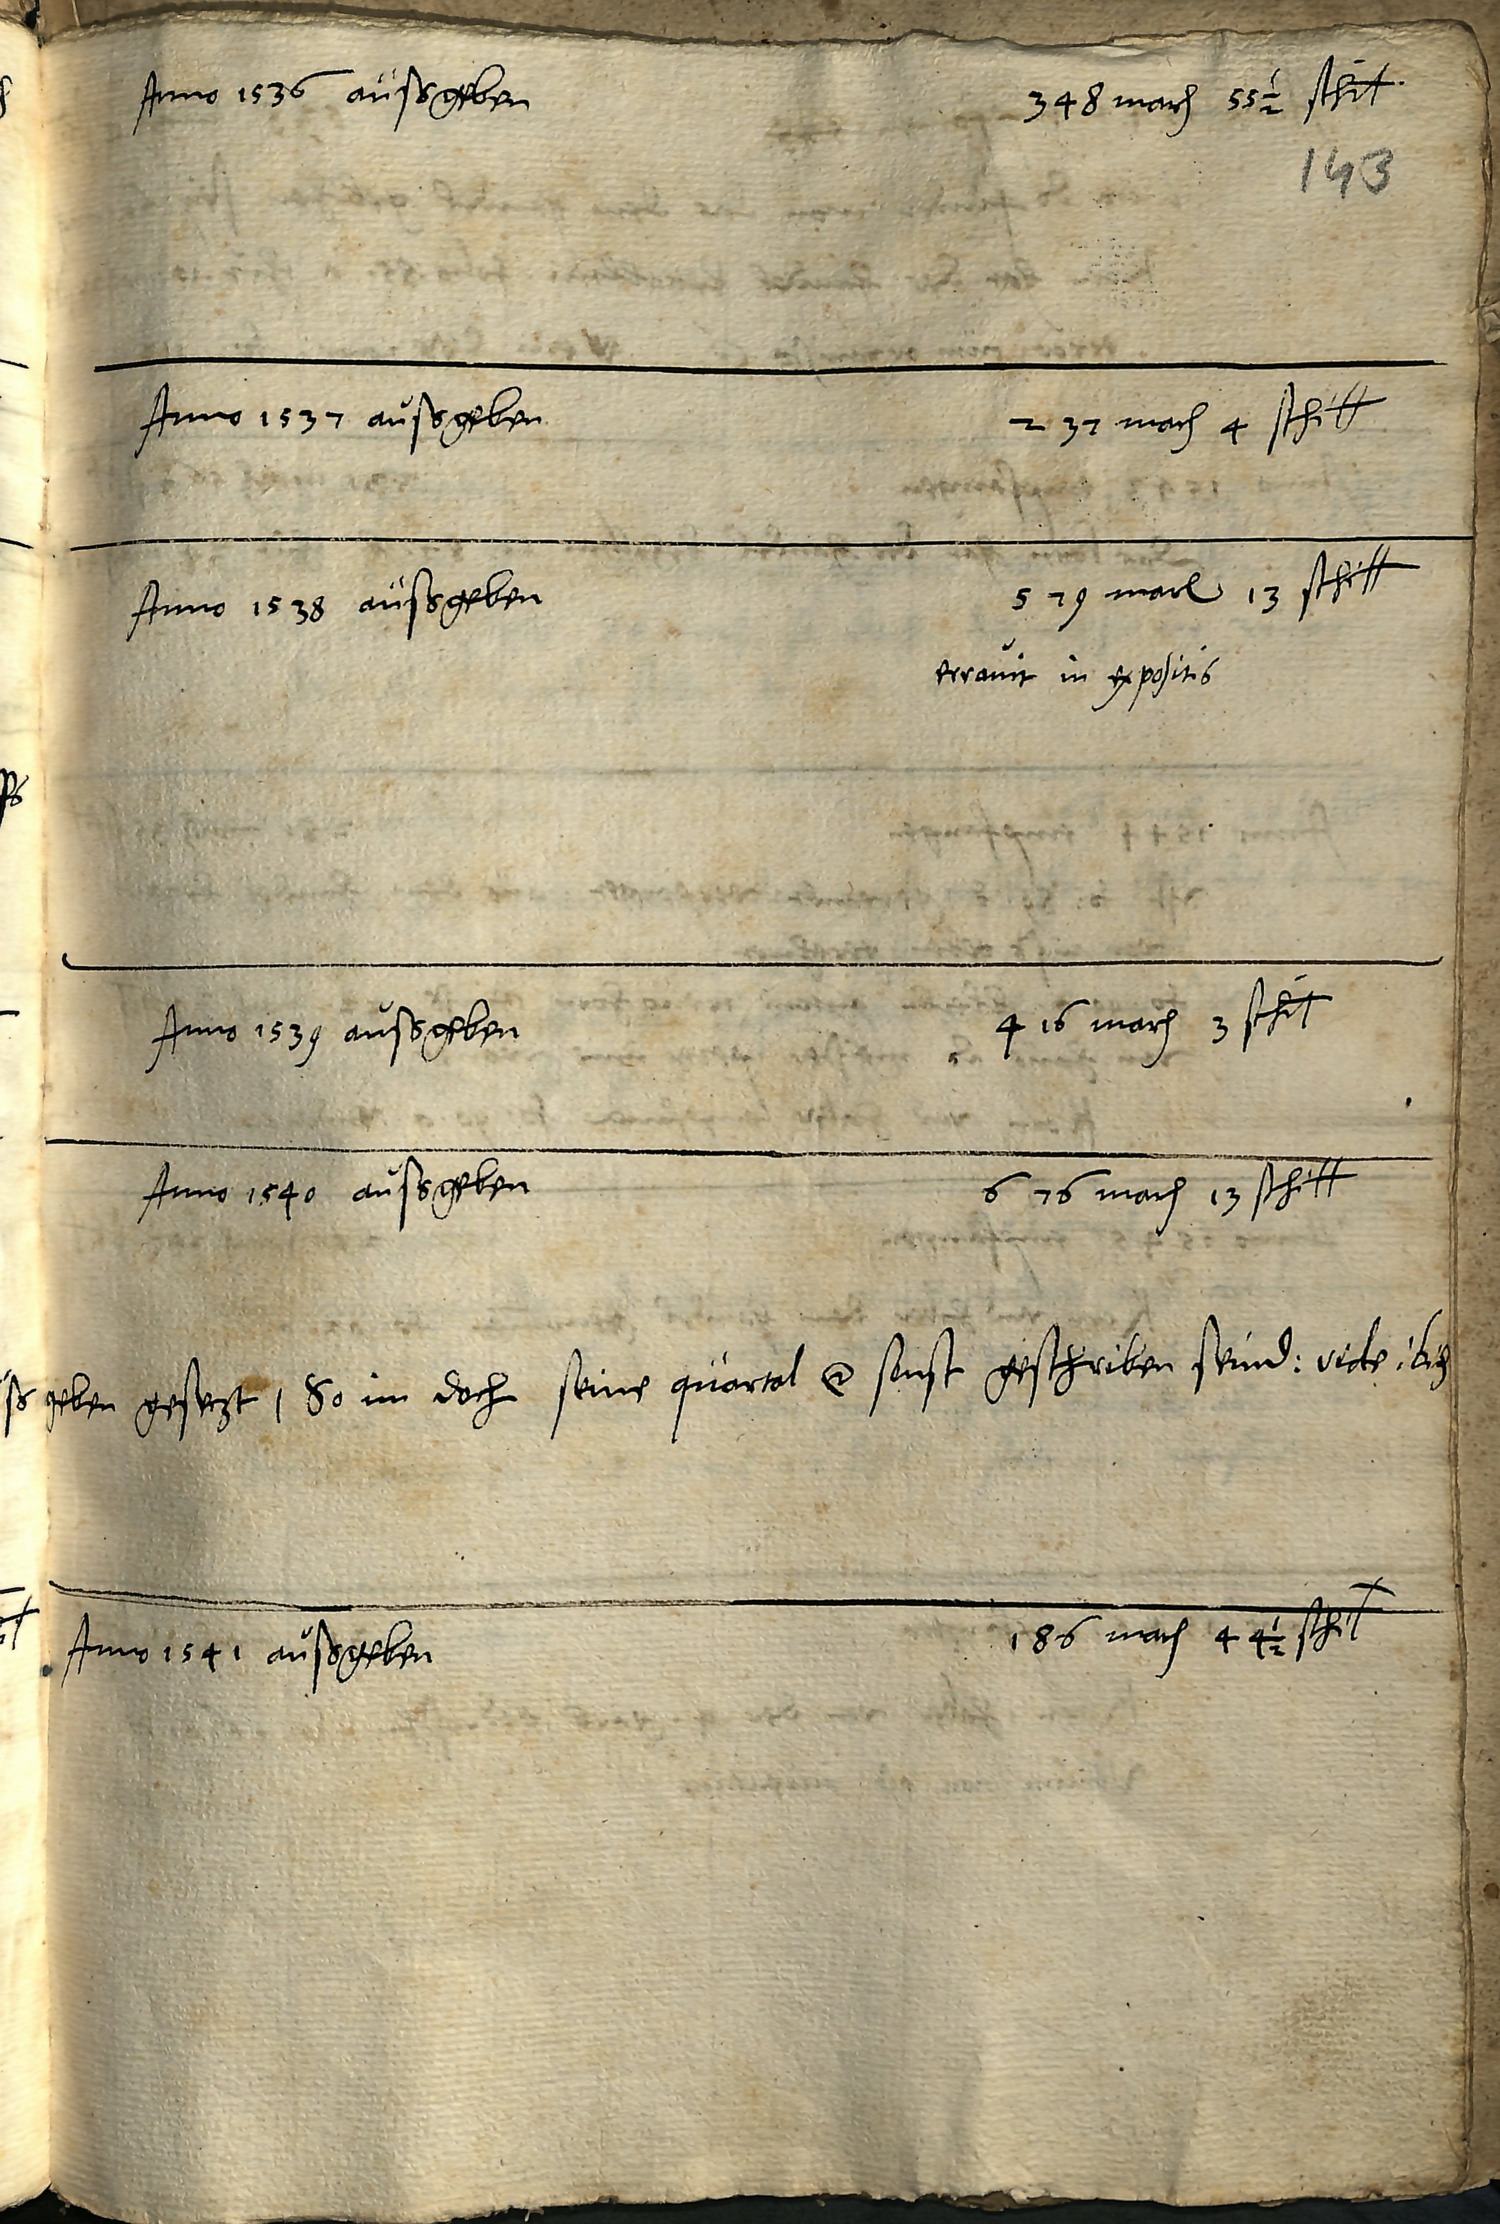 Anno 1536 außgeben 348 march 55½ schil
143
Anno 1537 außgeben 237 march 4 schill
Anno 1538 außgeben 579 mark 13 schill
erravit in expositis
Anno 1539 außgeben 416 march 3 schil
Anno 1540 außgeben 676 march 13 schill
geben gesetzt / So im doch seine quartal sunst geschriben seind: vide ibid
Anno 1541 außgeben 186 march 44½ schil